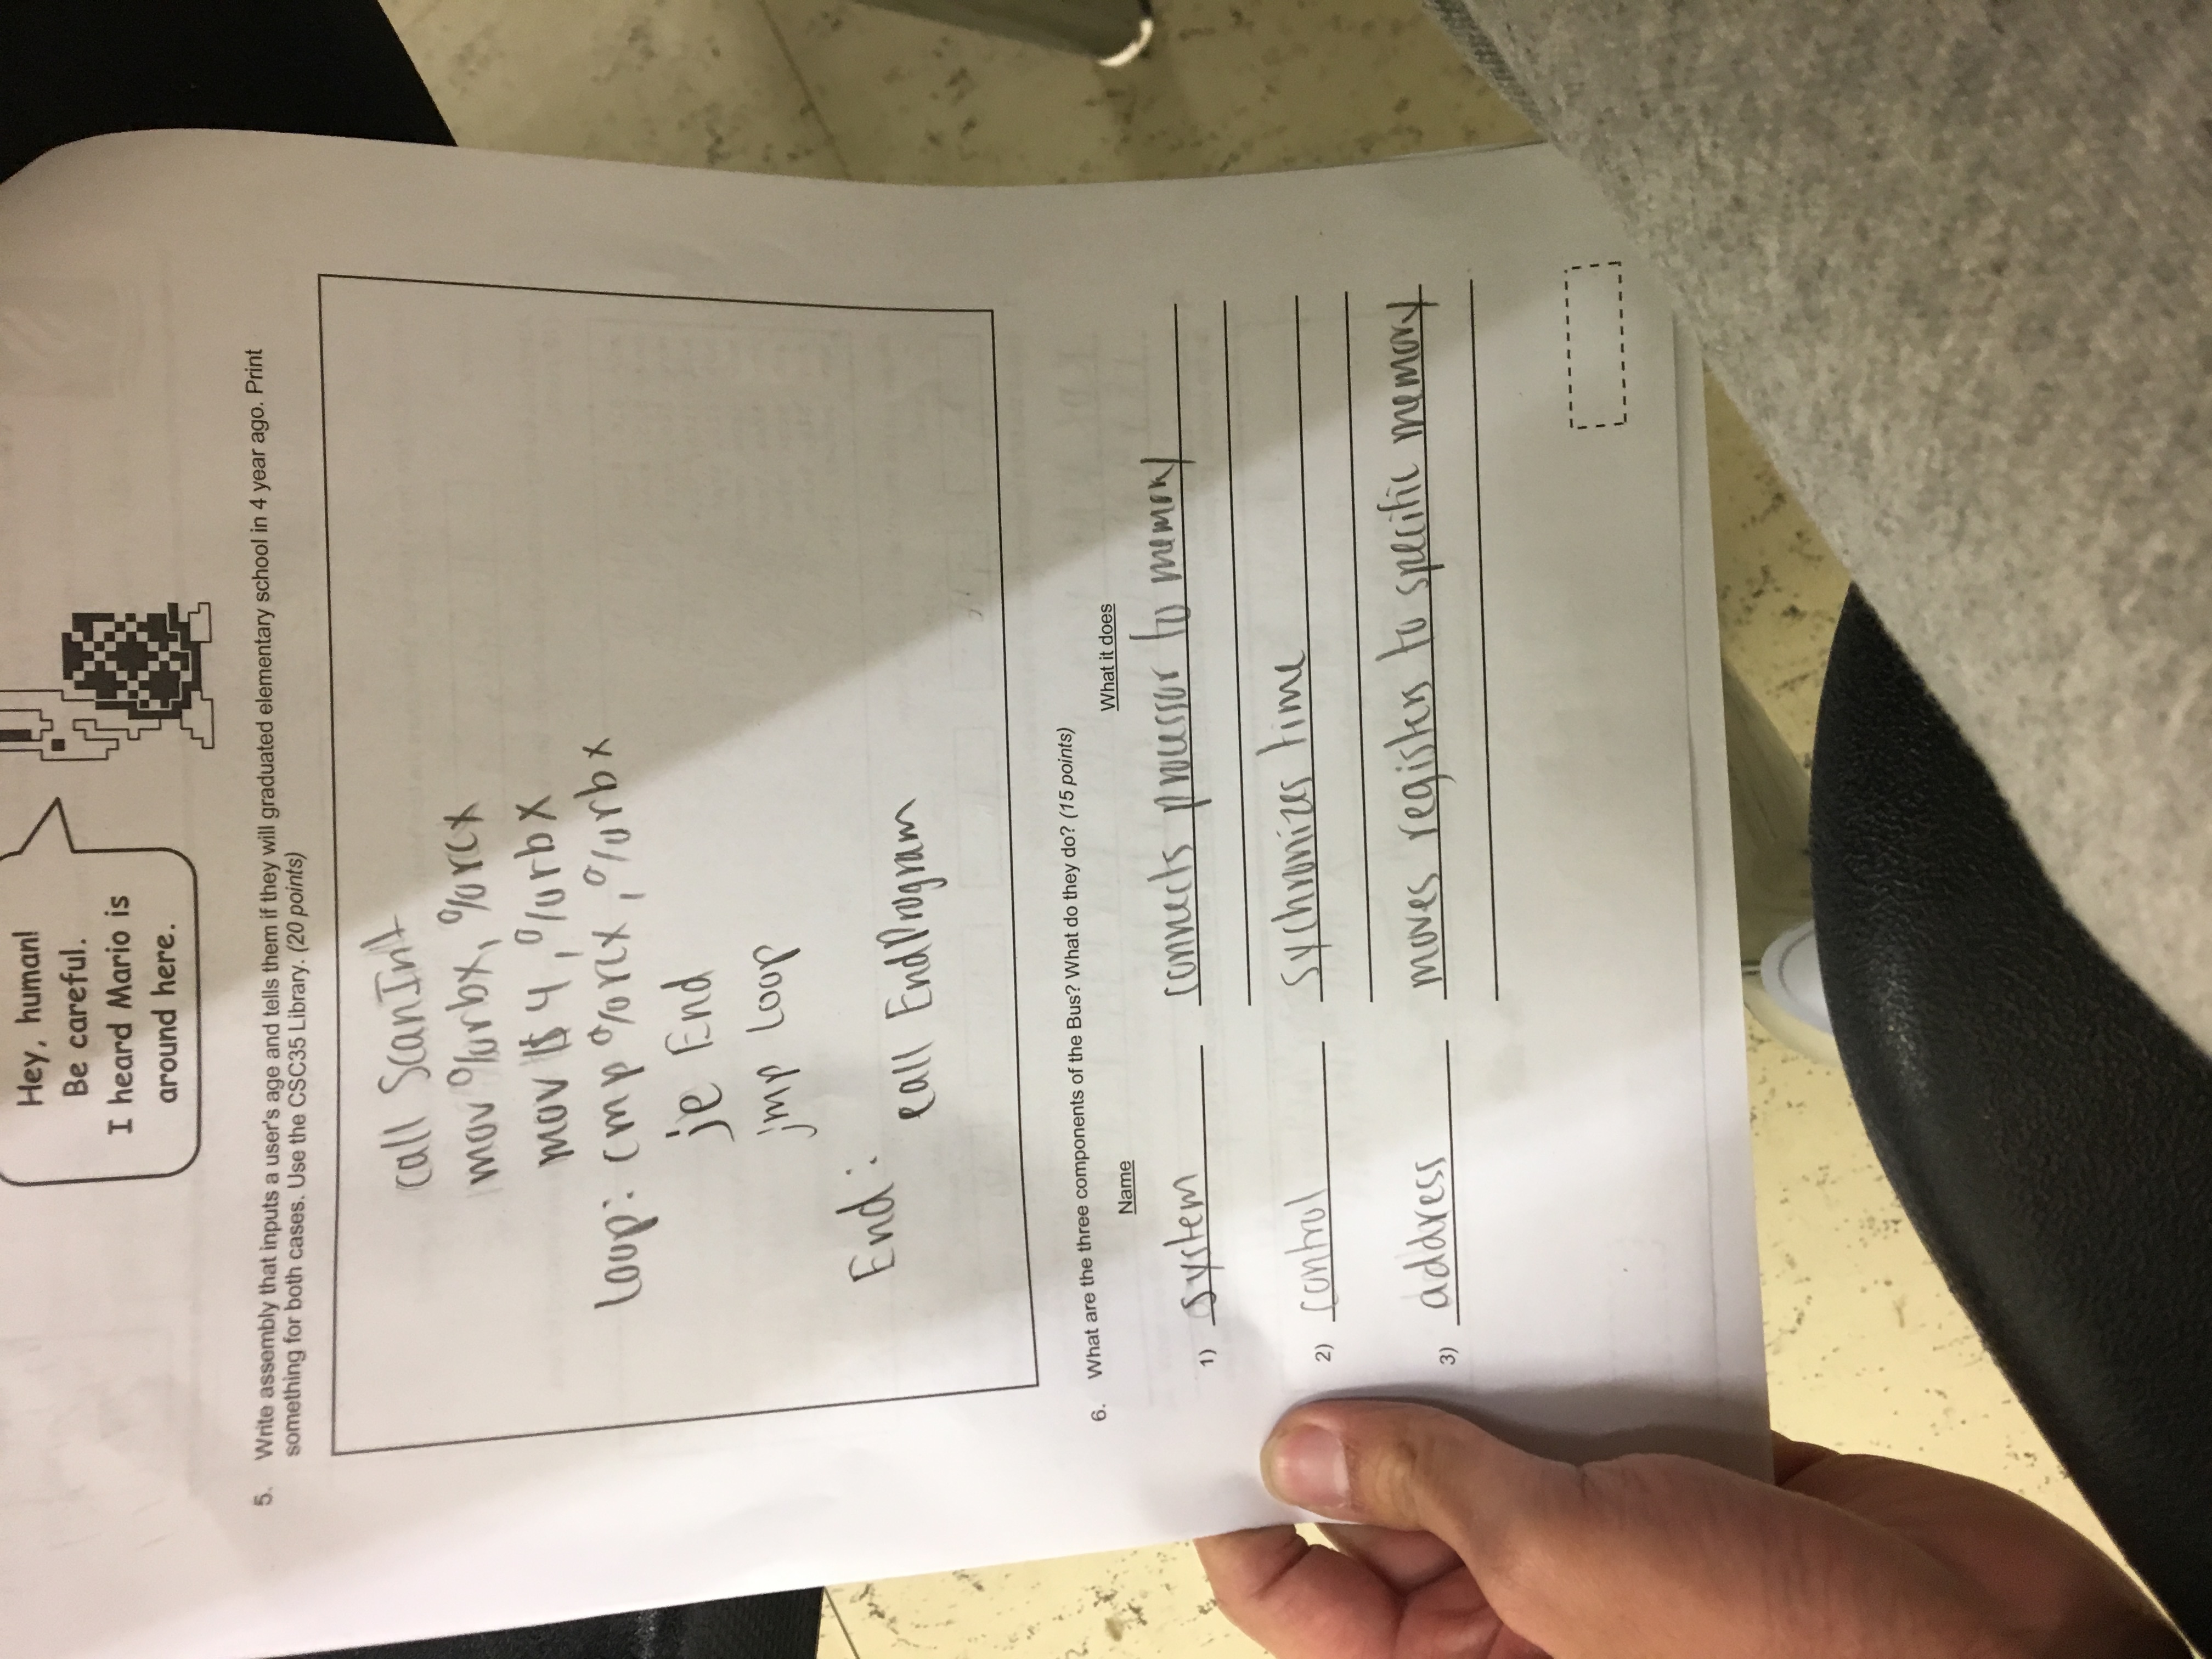 Hey, human!
Be careful.
I heard Mario is
around here.
5. Write assembly that inputs a user's age and tells them if they will graduated elementary school in 4 year ago. Print
something for both cases. Use the CSC35 Library. (20 points)
call ScanInt
mov %rbx, %rcx
mov $4, %rbx
Loop: cmp %rcx, %rbx
je End
jmp Loop
End:
call EndProgram
6. What are the three components of the Bus? What do they do? (15 points)
Name What it does
1) system connects processor to memory
2) control sychronizes time
3) address moves registers to specific memory